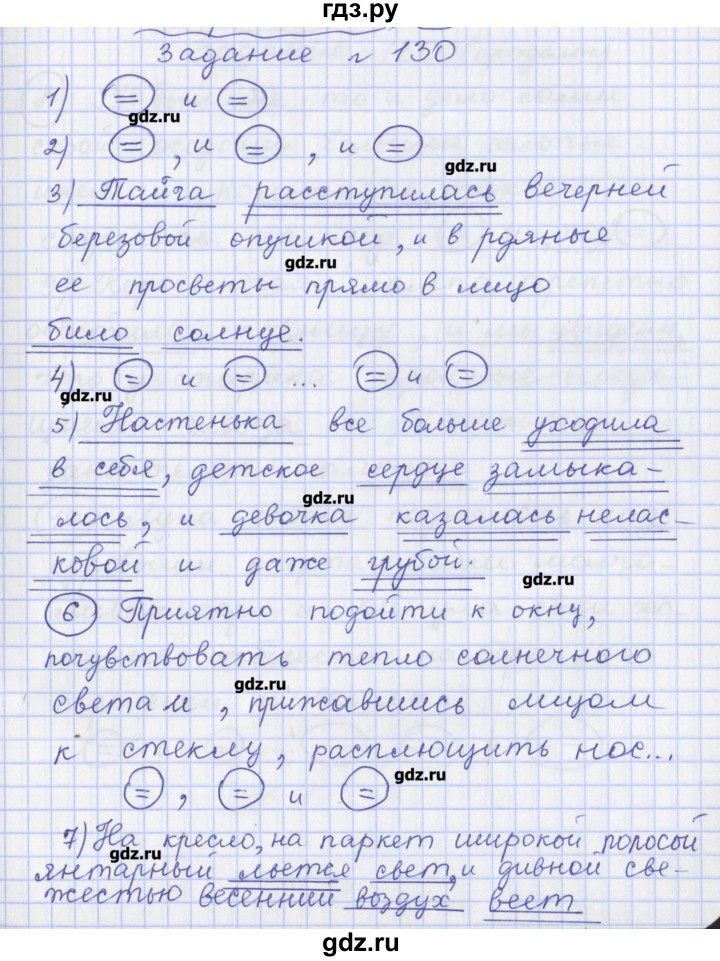 гдз.ру
Задание № 130
1) (=) и (=)
gdz.ru
2) (=), и (=), и (=)
gdz.ru
3) Тайга расступилась вечерней
березовой опушкой, и в рдяные
gdz.ru
ее просветы прямо в лицо
било солнце.
4) (=) и (=) ... (=) и (=)
gdz.ru
gdz.ru
5) Настенька все больше уходила
в себя, детское сердце замыка-
gdz.ru
лось, и девочка казалась нелас-
ковой и даже грубой.
gdz.ru
6 Приятно подойти к окну,
почувствовать тепло солнечного
gdz.ru
света и, прижавшись лицом
к стеклу, расплющить нос...
gdz.ru
(=), (=) и (=)
7) На кресло, на паркет широкой полосой
gdz.ru
янтарный льется свет, и дивной све-
жестью весенний воздух веет
gdz.ru
gdz.ru